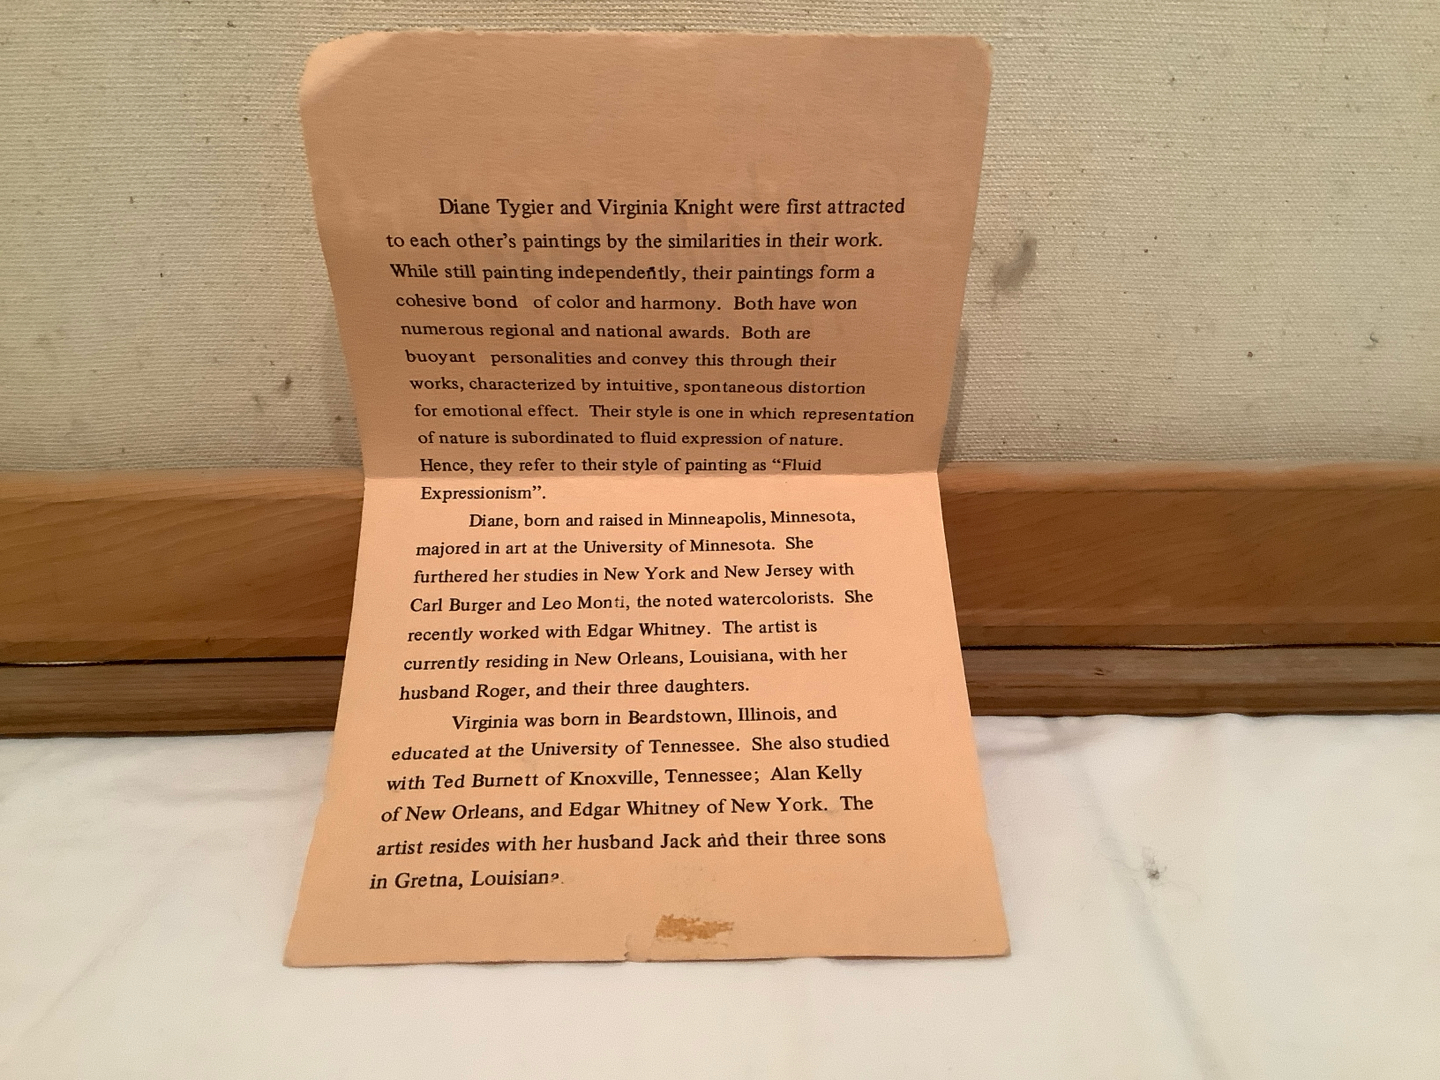 Diane Tygier and Virginia Knight were first attracted
to each other's paintings by the similarities in their work.
While still painting independently, their paintings form a
cohesive bond of color and harmony. Both have won
numerous regional and national awards. Both are
buoyant personalities and convey this through their
works, characterized by intuitive, spontaneous distortion
for emotional effect. Their style is one in which representation
of nature is subordinated to fluid expression of nature.
Hence, they refer to their style of painting as “Fluid
Expressionism”.
Diane, born and raised in Minneapolis, Minnesota,
majored in art at the University of Minnesota. She
furthered her studies in New York and New Jersey with
Carl Burger and Leo Monti, the noted watercolorists. She
recently worked with Edgar Whitney. The artist is
currently residing in New Orleans, Louisiana, with her
husband Roger, and their three daughters.
Virginia was born in Beardstown, Illinois, and
educated at the University of Tennessee. She also studied
with Ted Burnett of Knoxville, Tennessee; Alan Kelly
of New Orleans, and Edgar Whitney of New York. The
artist resides with her husband Jack and their three sons
in Gretna, Louisiana.